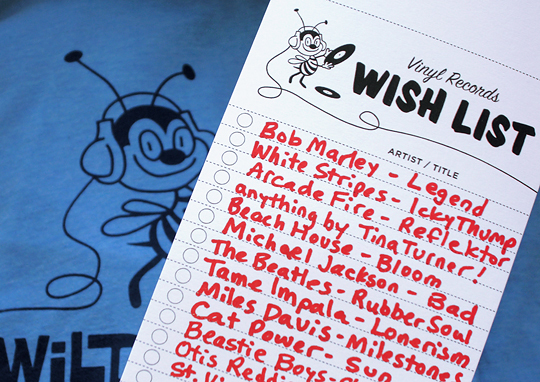 Vinyl Records
WISH LIST
ARTIST / TITLE
Bob Marley - Legend
White Stripes - Icky Thump
Arcade Fire - Reflektor
anything by Tina Turner!
Beach House - Bloom
Michael Jackson - Bad
The Beatles - Rubber Soul
Tame Impala - Lonerism
Miles Davis - Milestones
Cat Power - Sun
Beastie Boys -
Otis
St.
WILT